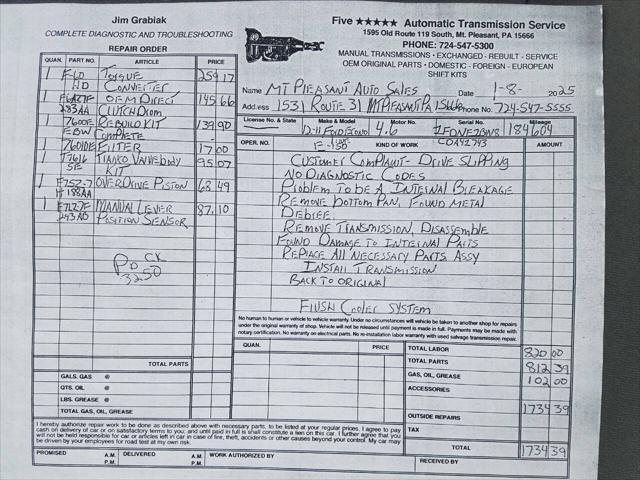 Jim Grabiak
COMPLETE DIAGNOSTIC AND TROUBLESHOOTING
REPAIR ORDER
Five ★★★★★ Automatic Transmission Service
1595 Old Route 119 South, Mt. Pleasant, PA 15666
PHONE: 724-547-5300
MANUAL TRANSMISSIONS • EXCHANGED - REBUILT - SERVICE
OEM ORIGINAL PARTS • DOMESTIC - FOREIGN - EUROPEAN
SHIFT KITS
Name MT PLEASANT AUTO SALES 1-8- 2025
Address 1531 ROUTE 31 MT PLEASANT PA 15666 Phone No. 724-547-5555
License No. & State Make & Model Motor No. Serial No.
D-11 FORD ECONO 4.6 184604
E-150 CDA42743
QUAN. PART NO. ARTICLE PRICE
1 F-60 TORQUE 259 17
HD CONVERTER
1 OEM DIRECT 145 66
283AA CLUTCH DRUM
1 7600F REBUILD KIT 139 90
EBW COMPLETE
1 7601DE FILTER 17 00
1 T7616 TRANSKO VALVEBODY 95 07
SE KIT
1 F75Z-7 OVERDRIVE PISTON 68 49
H188AA
1 F7LZ-7F MANUAL LEVER 87 10
293AD POSITION SENSOR
PD CK
3250
TOTAL PARTS
GALS. GAS @
QTS. OIL @
LBS. GREASE @
TOTAL GAS, OIL, GREASE
OPER. NO. KIND OF WORK AMOUNT
CUSTOMER COMPLAINT- DRIVE SLIPPING
NO DIAGNOSTIC CODES
PROBLEM TO BE A INTERNAL BREAKAGE
REMOVE BOTTOM PAN, FOUND METAL
DEBREE.
REMOVE TRANSMISSION, DISASSEMBLE
FOUND DAMAGE TO INTERNAL PARTS
REPLACE ALL NECESSARY PARTS ASSY
INSTALL TRANSMISSION
BACK TO ORIGINAL
FLUSH COOLER SYSTEM
No human to human or vehicle to vehicle warranty. Under no circumstances will vehicle be taken to another shop for repairs
under the original warranty of shop. Vehicle will not be released until payment is made in full. Payments may be made with
notary certification. No warranty on electrical parts. No re-installation labor warranty with used salvage transmission repair.
QUAN. PRICE
TOTAL LABOR 820 00
TOTAL PARTS 812 39
GAS, OIL, GREASE 102 00
ACCESSORIES
1734 39
OUTSIDE REPAIRS
TAX
TOTAL 1734 39
I hereby authorize repair work to be done as described above with necessary parts, to be listed at your regular prices. I agree to pay
cash on delivery of car or on satisfactory terms to you; and until paid in full is shall constitute a lien on this car. I further agree that you
will not be held responsible for car or articles left in car in case of fire, theft, accidents or other causes beyond your control. My car may
be driven by your employees for road test at my own risk.
PROMISED A.M. P.M. DELIVERED A.M. P.M. WORK AUTHORIZED BY RECEIVED BY